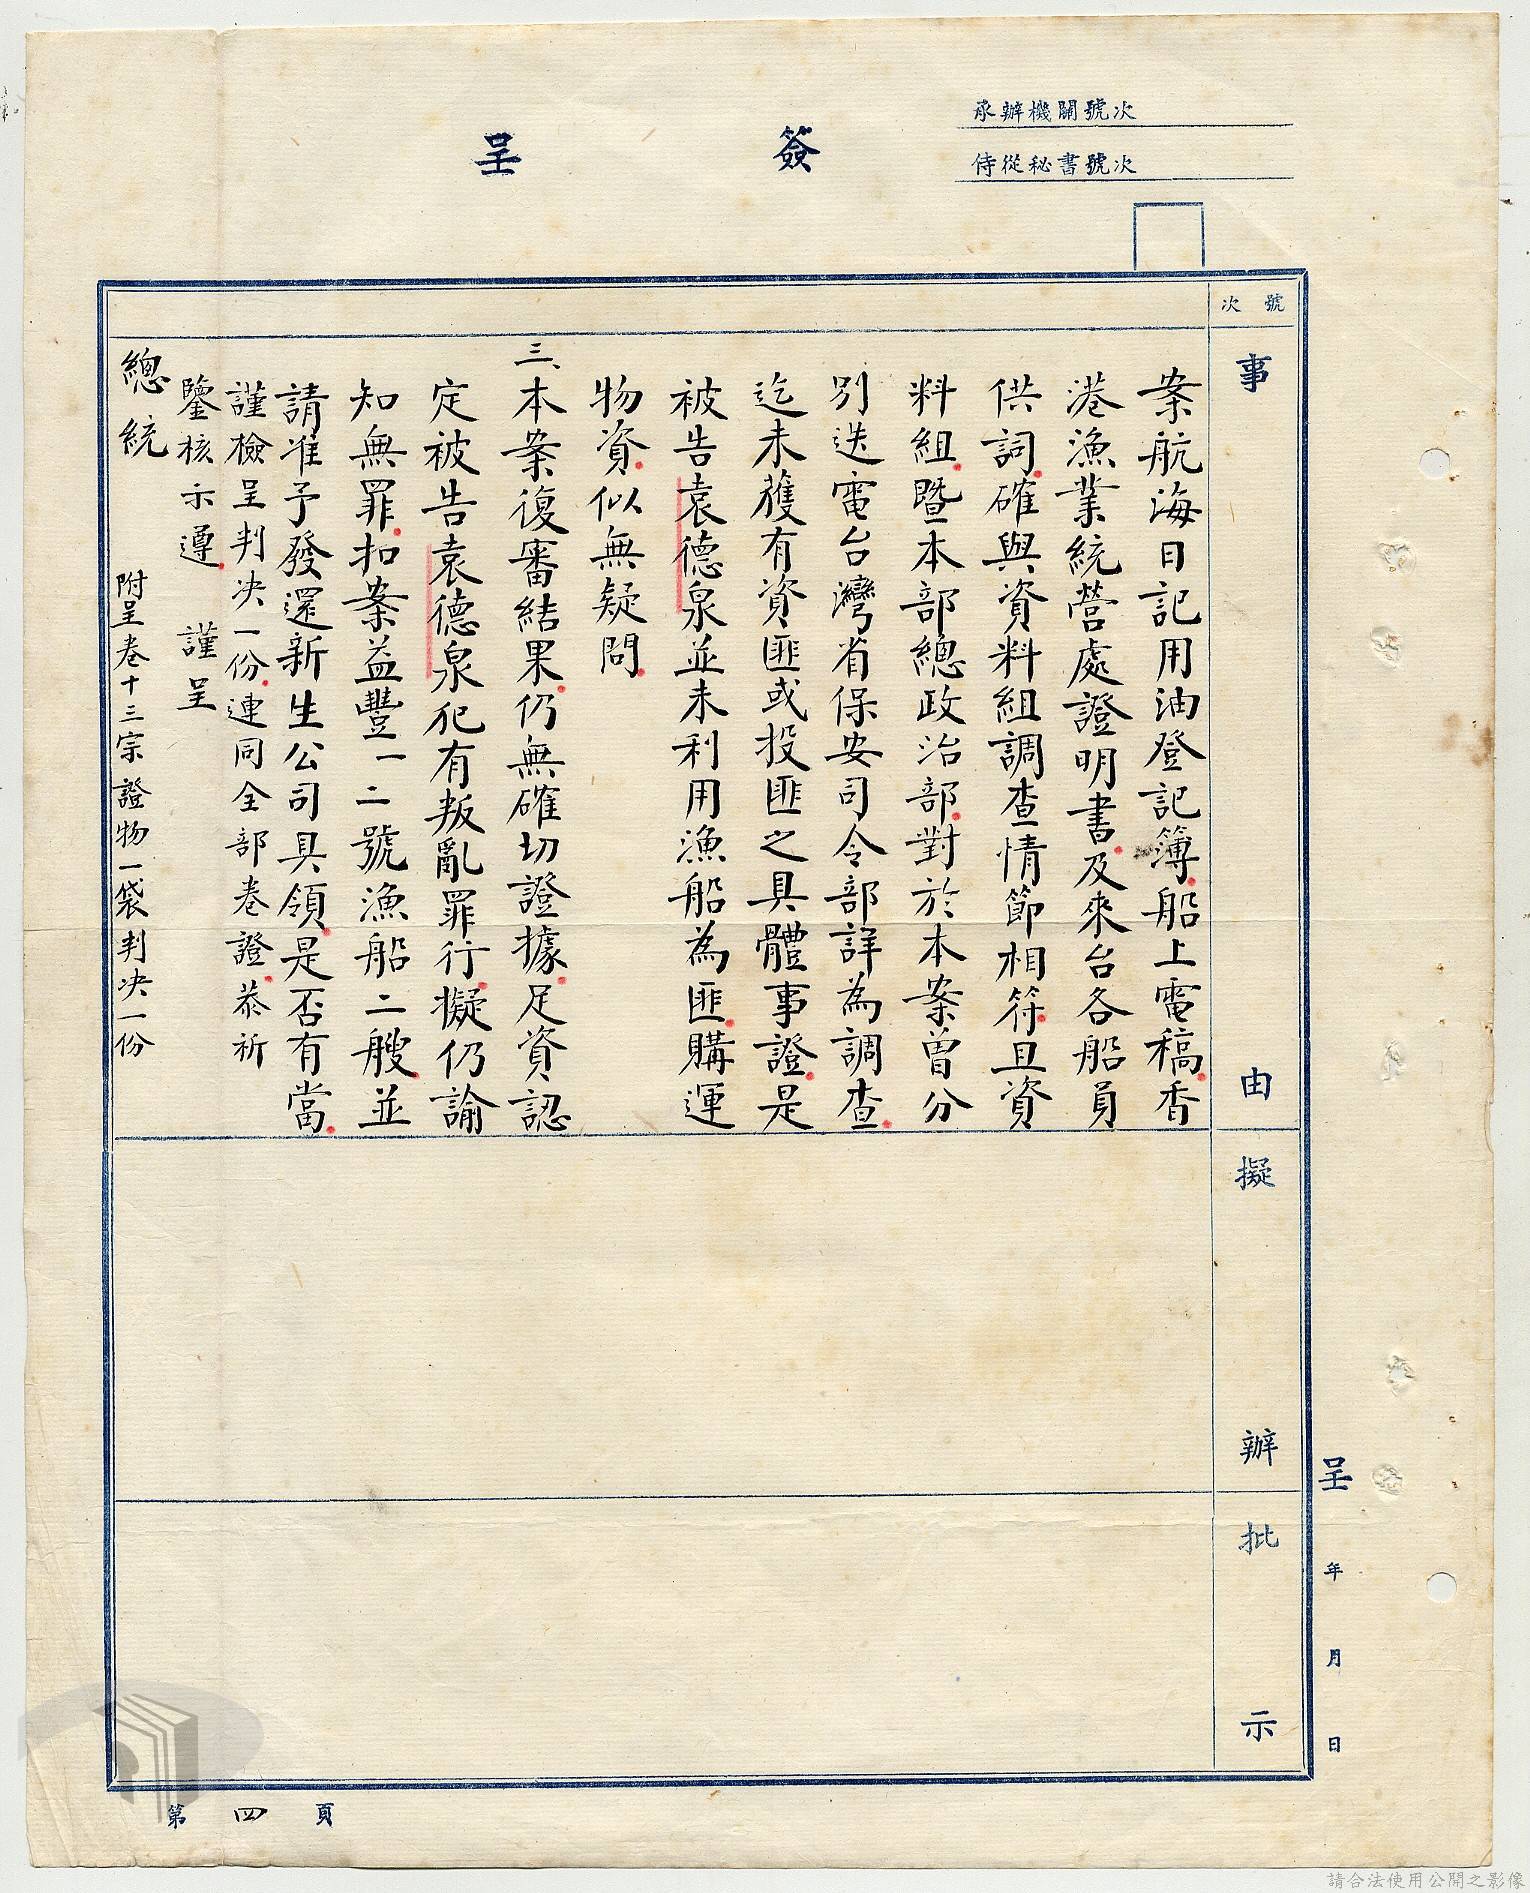 承辦機關號次
侍從秘書號次
簽呈
號次
事由
擬辦
批示
呈 年 月 日
案航海日記用油登記簿.船上電稿.香
港漁業統營處證明書.及來台各船員
供詞.確與資料組調查情節相符.且資
料組.暨本部總政治部.對於本案曾分
別迭電台灣省保安司令部詳為調查.
迄未獲有資匪或投匪之具體事證.是
被告袁德泉並未利用漁船為匪.購運
物資.似無疑問.
三、本案復審結果.仍無確切證據.足資認
定被告袁德泉犯有叛亂罪行.擬仍諭
知無罪.扣案益豐一二號漁船二艘.並
請准予發還新生公司具領.是否有當.
謹檢呈判決一份.連同全部卷證.恭祈
鑒核示遵. 謹呈
總統
附呈卷十三宗證物一袋判決一份
第四頁
請合法使用公開之影像